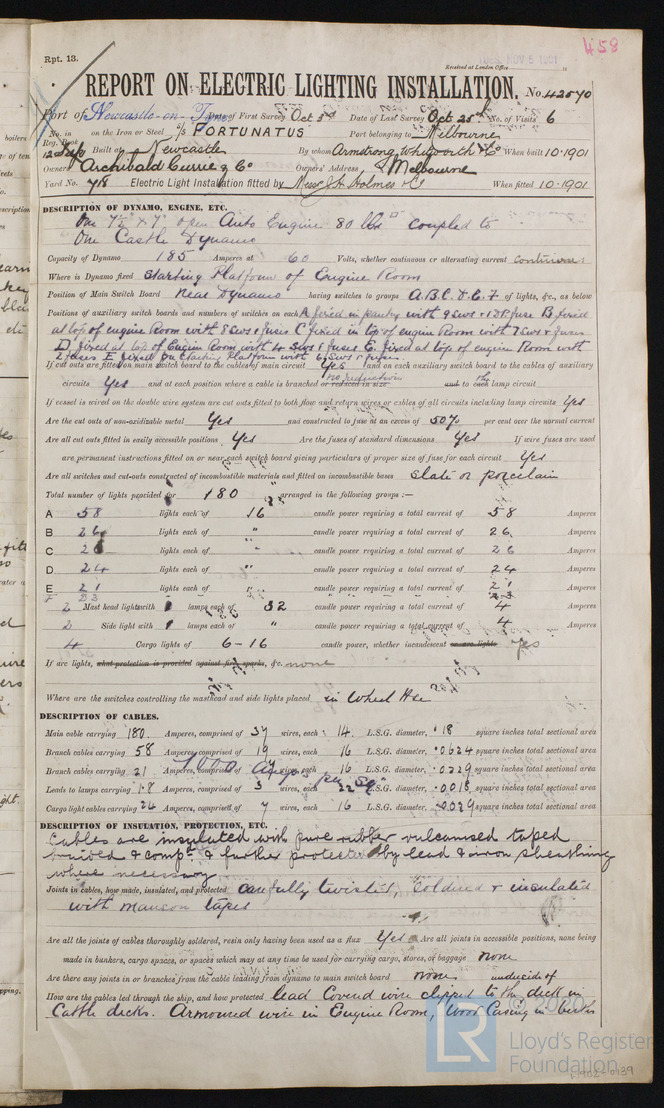 458
Rpt. 13.
Received at London Office
TUES. NOV 5 1901
REPORT ON ELECTRIC LIGHTING INSTALLATION. No. 42570
Port of Newcastle-on-Tyne Date of First Survey Oct 3rd Date of Last Survey Oct 25th No. of Visits 6
No. in Reg. Book on the Iron or Steel S/S FORTUNATUS Port belonging to Melbourne
Built at Newcastle By whom Armstrong, Whitworth & Co When built 10.1901
Owners Archibald Currie & Co Owners' Address Melbourne
Yard No. 718 Electric Light Installation fitted by Messr J. H. Holmes & Co When fitted 10.1901
DESCRIPTION OF DYNAMO, ENGINE, ETC.
One 7½" x 7" open Auto Engine 80 lbs □" coupled to
One Castle Dynamo
Capacity of Dynamo 185 Amperes at 60 Volts, whether continuous or alternating current continuous
Where is Dynamo fixed Starting Platform of Engine Room
Position of Main Switch Board Near Dynamo having switches to groups A.B.C.D.E.F of lights, &c., as below
Positions of auxiliary switch boards and numbers of switches on each A fixed in pantry with 9 Sws & 1 D.P. fuse B fixed
at top of engine Room with 8 Sws & fuses C fixed in top of engine Room with 7 Sws & fuses
D fixed at top of Engine Room with 4 Sws & fuses E fixed at top of engine Room with
2 fuses F fixed on Starting Platform with 6 Sws & fuses.
If cut outs are fitted on main switch board to the cables of main circuit Yes and on each auxiliary switch board to the cables of auxiliary
circuits Yes and at each position where a cable is branched or reduced in size no reduction and to the each lamp circuit
If vessel is wired on the double wire system are cut outs fitted to both flow and return wires or cables of all circuits including lamp circuits Yes
Are the cut outs of non-oxidizable metal Yes and constructed to fuse at an excess of 50% per cent over the normal current
Are all cut outs fitted in easily accessible positions Yes Are the fuses of standard dimensions Yes If wire fuses are used
are permanent instructions fitted on or near each switch board giving particulars of proper size of fuse for each circuit Yes
Are all switches and cut-outs constructed of incombustible materials and fitted on incombustible bases slate or porcelain
Total number of lights provided for 180 arranged in the following groups :—
A 58 lights each of 16 candle power requiring a total current of 58 Amperes
B 26 lights each of " candle power requiring a total current of 26 Amperes
C 26 lights each of " candle power requiring a total current of 26 Amperes
D 24 lights each of " candle power requiring a total current of 24 Amperes
E 21 lights each of " candle power requiring a total current of 21 Amperes
F 23 23
2 Mast head lights with 1 lamps each of 32 candle power requiring a total current of 4 Amperes
2 Side light with 1 lamps each of " candle power requiring a total current of 4 Amperes
4 Cargo lights of 6-16 candle power, whether incandescent or arc lights yes
If arc lights, what protection is provided against fire, sparks, &c. none
Where are the switches controlling the masthead and side lights placed in Wheel Hse
DESCRIPTION OF CABLES.
Main cable carrying 180 Amperes, comprised of 37 wires, each 14 L.S.G. diameter, .18 square inches total sectional area
Branch cables carrying 58 Amperes, comprised of 19 wires, each 16 L.S.G. diameter, .0624 square inches total sectional area
Branch cables carrying 21 Amperes, comprised of 7 wires, each 16 L.S.G. diameter, .0229 square inches total sectional area
Leads to lamps carrying 1.8 Amperes, comprised of 3 wires, each 22 L.S.G. diameter, .0018 square inches total sectional area
Cargo light cables carrying 24 Amperes, comprised of 7 wires, each 16 L.S.G. diameter, .0229 square inches total sectional area
DESCRIPTION OF INSULATION, PROTECTION, ETC.
Cables are insulated with pure rubber vulcanised taped
braided & compd & further protected by lead & iron sheathing
where necessary
Joints in cables, how made, insulated, and protected carefully twisted, soldered & insulated
with manson tapes
Are all the joints of cables thoroughly soldered, resin only having been used as a flux Yes Are all joints in accessible positions, none being
made in bunkers, cargo spaces, or spaces which may at any time be used for carrying cargo, stores, or baggage none
Are there any joints in or branches from the cable leading from dynamo to main switch board none
How are the cables led through the ship, and how protected lead Covered wire clipped to the deck in
Cattle decks. Armoured wire in Engine Room, Wood Casing in berths
LR
© 2020
Lloyd's Register
Foundation